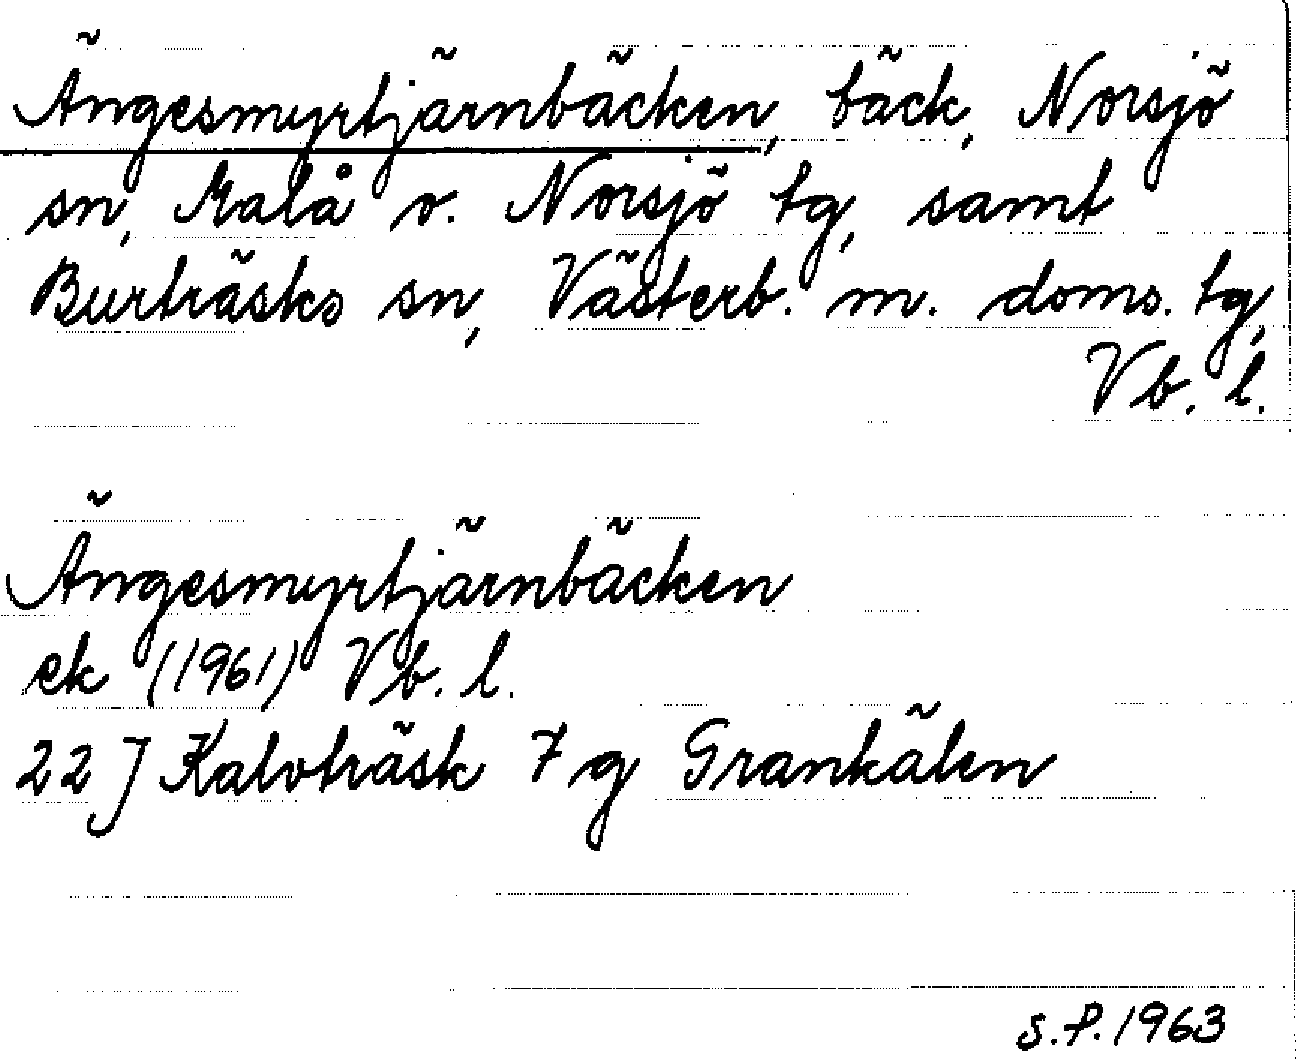 Ängesmyrtjärnbäcken, bäck, Norsjö
sn, Malå o. Norsjö tg, samt
Burträsks sn, Västerb. m. doms. tg,
Vb. l.
Ängesmyrtjärnbäcken
ek (1961) Vb. l.
22 J Kalvträsk 7 g Grankälen
S.P. 1963